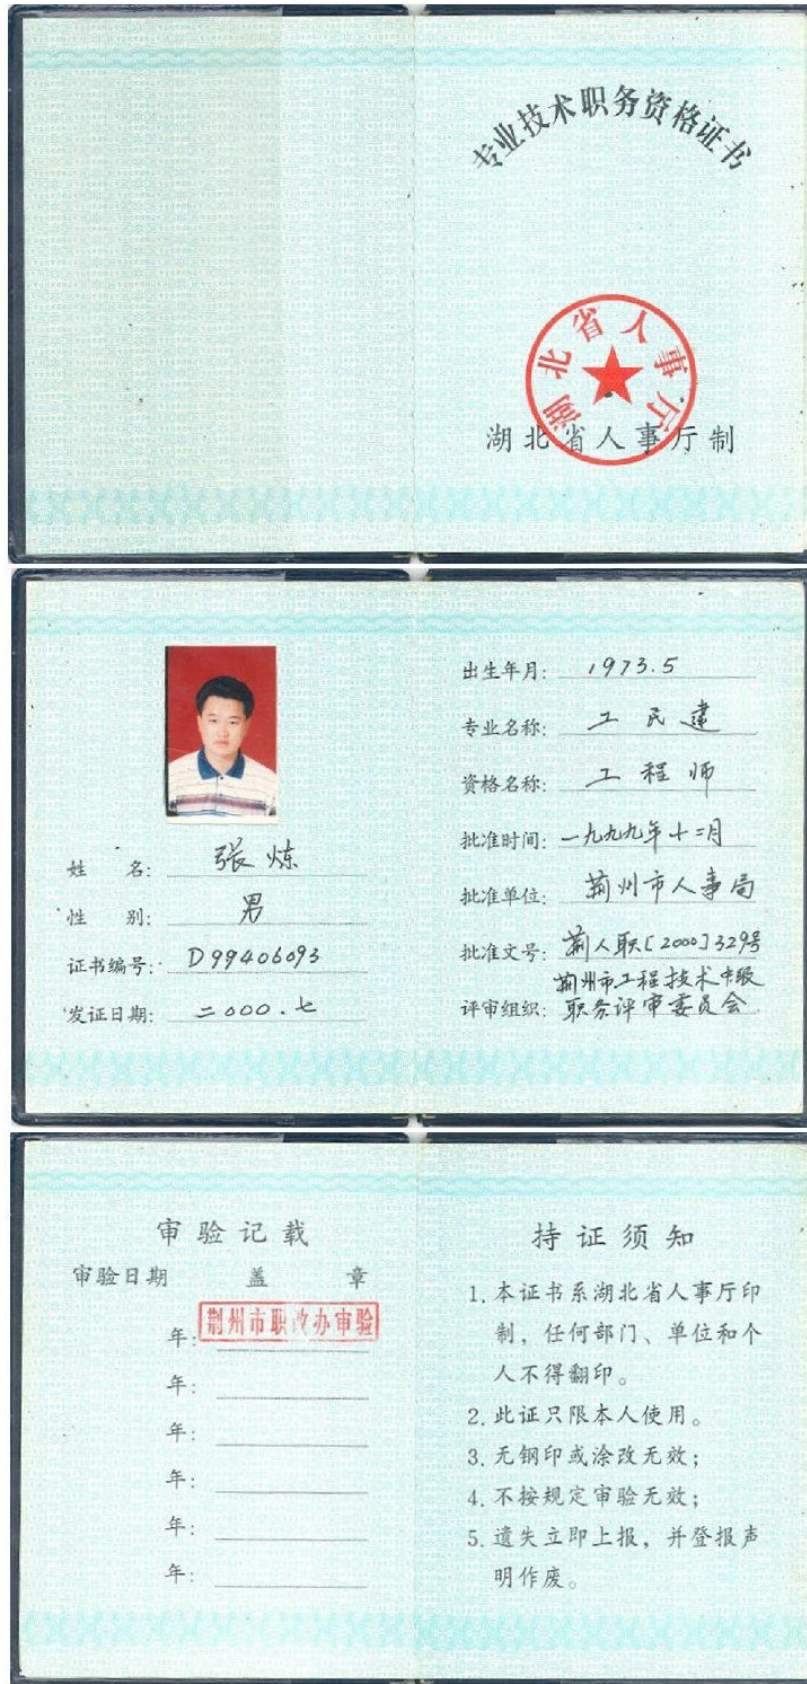 专业技术职务资格证书
湖北省人事厅
湖北省人事厅制
姓 名: 张炼
性 别: 男
证书编号: D99406093
发证日期: 二000.七
出生年月: 1973.5
专业名称: 工民建
资格名称: 工程师
批准时间: 一九九九年十二月
批准单位: 荊州市人事局
批准文号: 荊人职[2000]329号
评审组织: 荊州市工程技术中级
职务评审委员会
审验记载
审验日期 盖 章
年: 荆州市职改办审验
年:
年:
年:
年:
年:
持证须知
1. 本证书系湖北省人事厅印
制，任何部门、单位和个
人不得翻印。
2. 此证只限本人使用。
3. 无钢印或涂改无效；
4. 不按规定审验无效；
5. 遗失立即上报，并登报声
明作废。